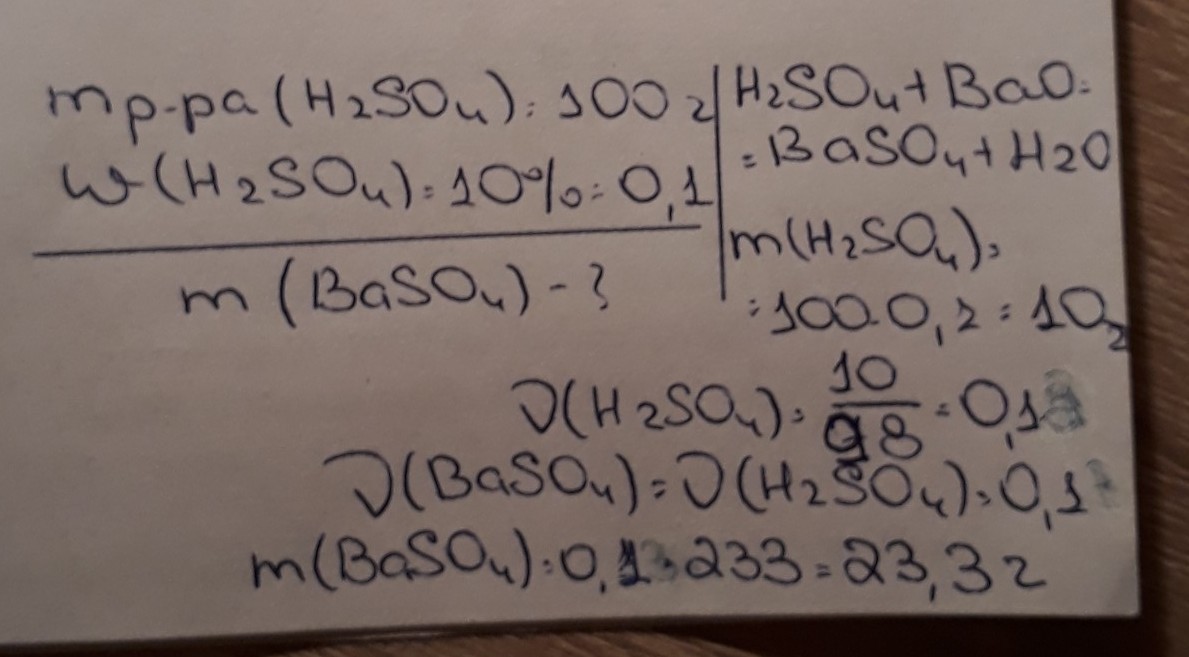 mр-ра (H2SO4) = 100 г
w(H2SO4) = 10% = 0,1
m (BaSO4) - ?
H2SO4 + BaO =
= BaSO4 + H2O
m(H2SO4) =
= 100·0,1 = 10г
ν(H2SO4) = 10/98 = 0,1
ν(BaSO4) = ν(H2SO4) = 0,1
m(BaSO4) = 0,1·233 = 23,3г